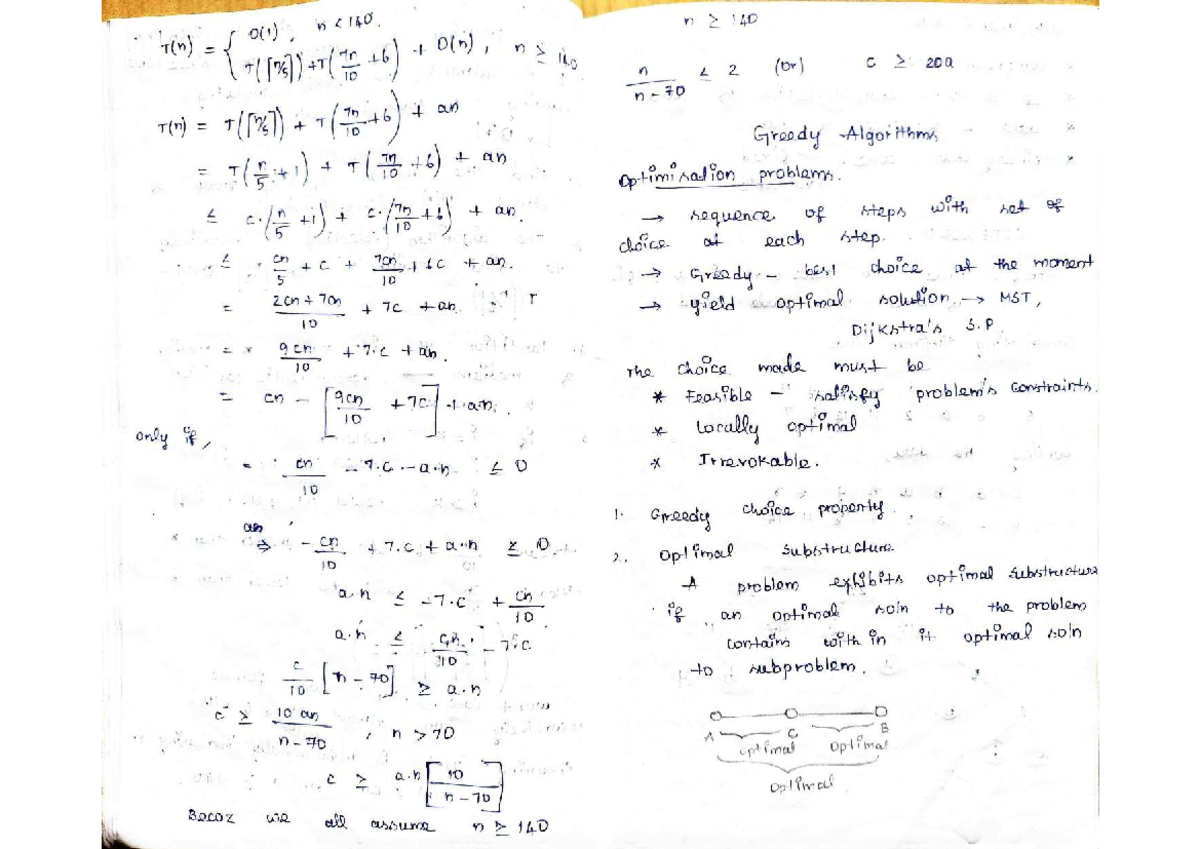 T(n) = { O(1), n < 140.
T(⌈n/5⌉) + T(7n/10 + 6) + O(n), n ≥ 140.
T(n) = T(⌈n/5⌉) + T(7n/10 + 6) + an
= T(n/5 + 1) + T(7n/10 + 6) + an
≤ c·(n/5 + 1) + c·(7n/10 + 6) + an.
≤ cn/5 + c + 7cn/10 + 6c + an.
= 2cn + 7cn / 10 + 7c + an
= 9cn/10 + 7·c + an.
= cn - [9cn/10 + 7c] + an.
only if,
= cn/10 - 7·c - a·n ≤ 0
an
⇒ -cn/10 + 7·c + a·n ≤ 0
a·n ≤ -7·c + cn/10
a·n ≤ cn/10 - 7·c
c/10 [n - 70] ≥ a·n
c ≥ 10 an / n - 70, n > 70
c ≥ a·n [10 / n - 70]
Becoz we all assume n ≥ 140
n ≥ 140
n / n - 70 ≤ 2 (or) c ≥ 20a
Greedy Algorithms
Optimisation problems.
→ sequence of steps with set of
choice at each step.
→ Greedy - best choice at the moment
→ yield optimal solution → MST,
Dijkstra's S.P.
The choice made must be
* Feasible - satisfy problem's constraints.
* Locally optimal
* Irrevokable.
1. Greedy choice property
2. Optimal substructure
A problem exhibits optimal substructure
if an optimal soln to the problem
contains with in it optimal soln
to subproblem.
A C B
optimal optimal
optimal